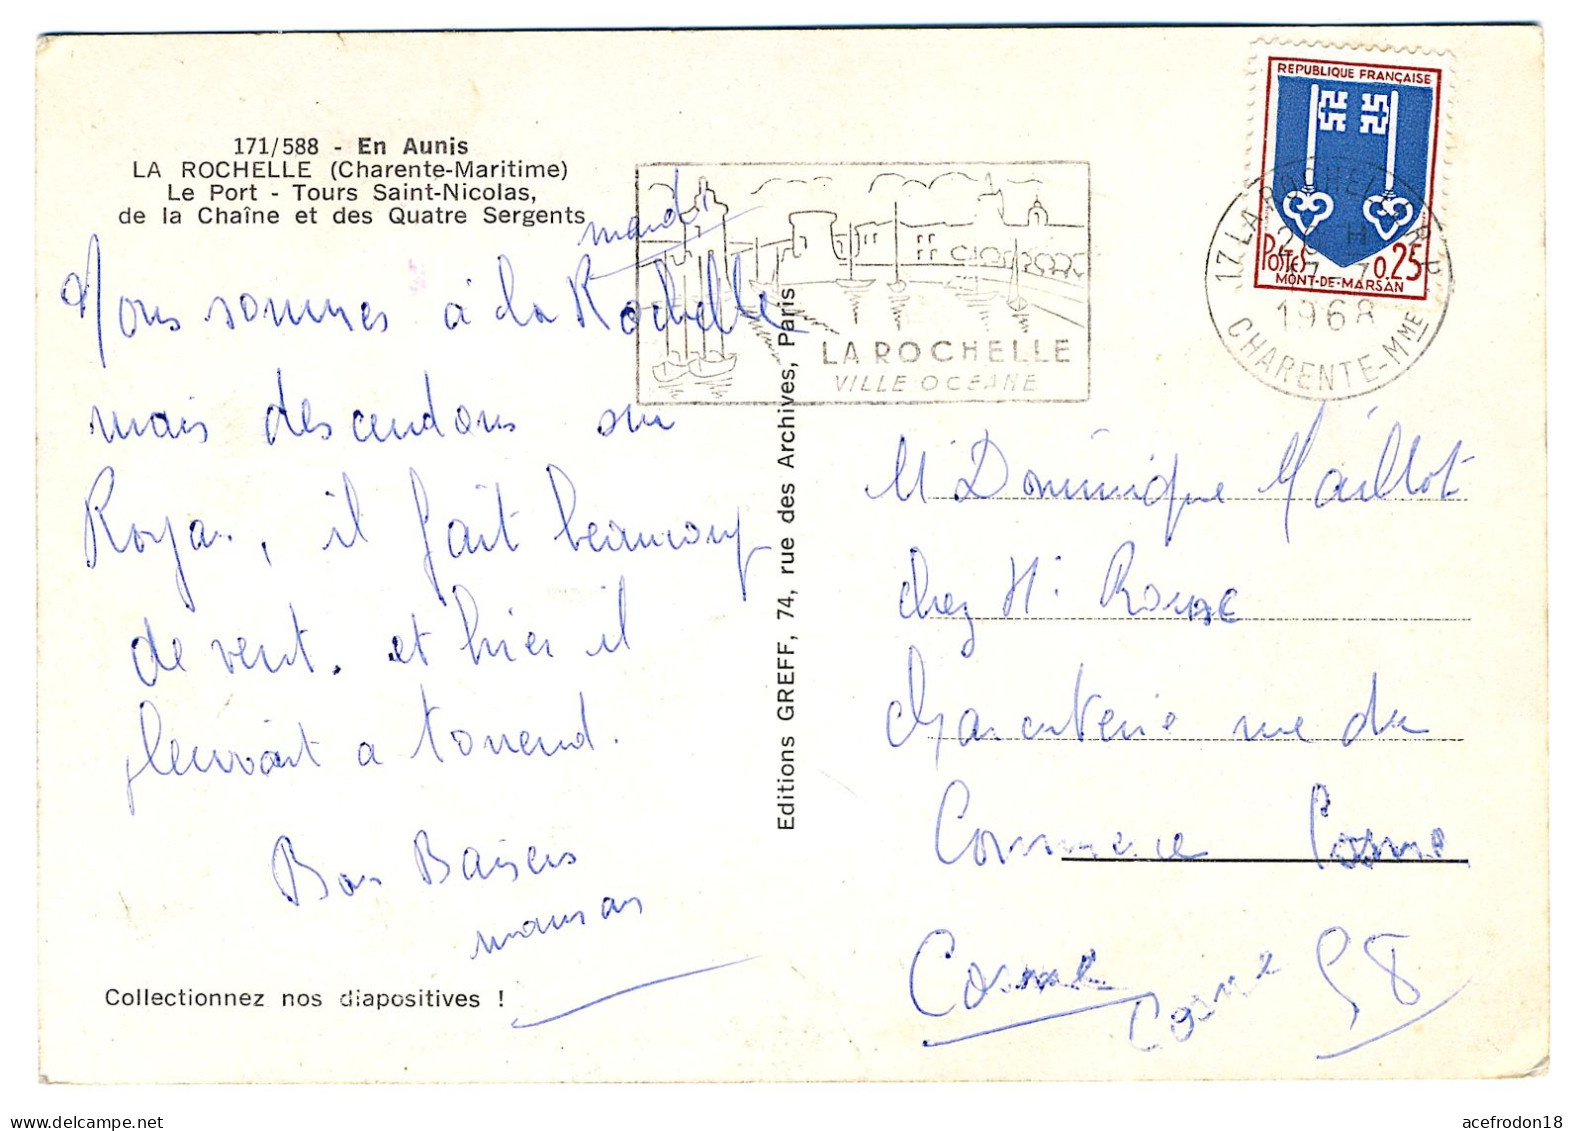 171/588 - En Aunis
LA ROCHELLE (Charente-Maritime)
Le Port - Tours Saint-Nicolas,
de la Chaîne et des Quatre Sergents
mardi
Nous sommes à La Rochelle
mais descendons sur
Royan, il fait beaucoup
de vent. et hier il
pleuvait a torrend.
Bons Baisers
maman
Collectionnez nos diapositives !
Editions GREFF, 74, rue des Archives, Paris
LA ROCHELLE
VILLE OCEANE
REPUBLIQUE FRANÇAISE
POSTES
0,25
MONT-DE-MARSAN
17 LA ROCHELLE
1968
CHARENTE-MME
M Dominique Maillot
chez M.
Charcuterie rue du
Commerce Cosne
Cosne
Cosne 58
acefrodon18